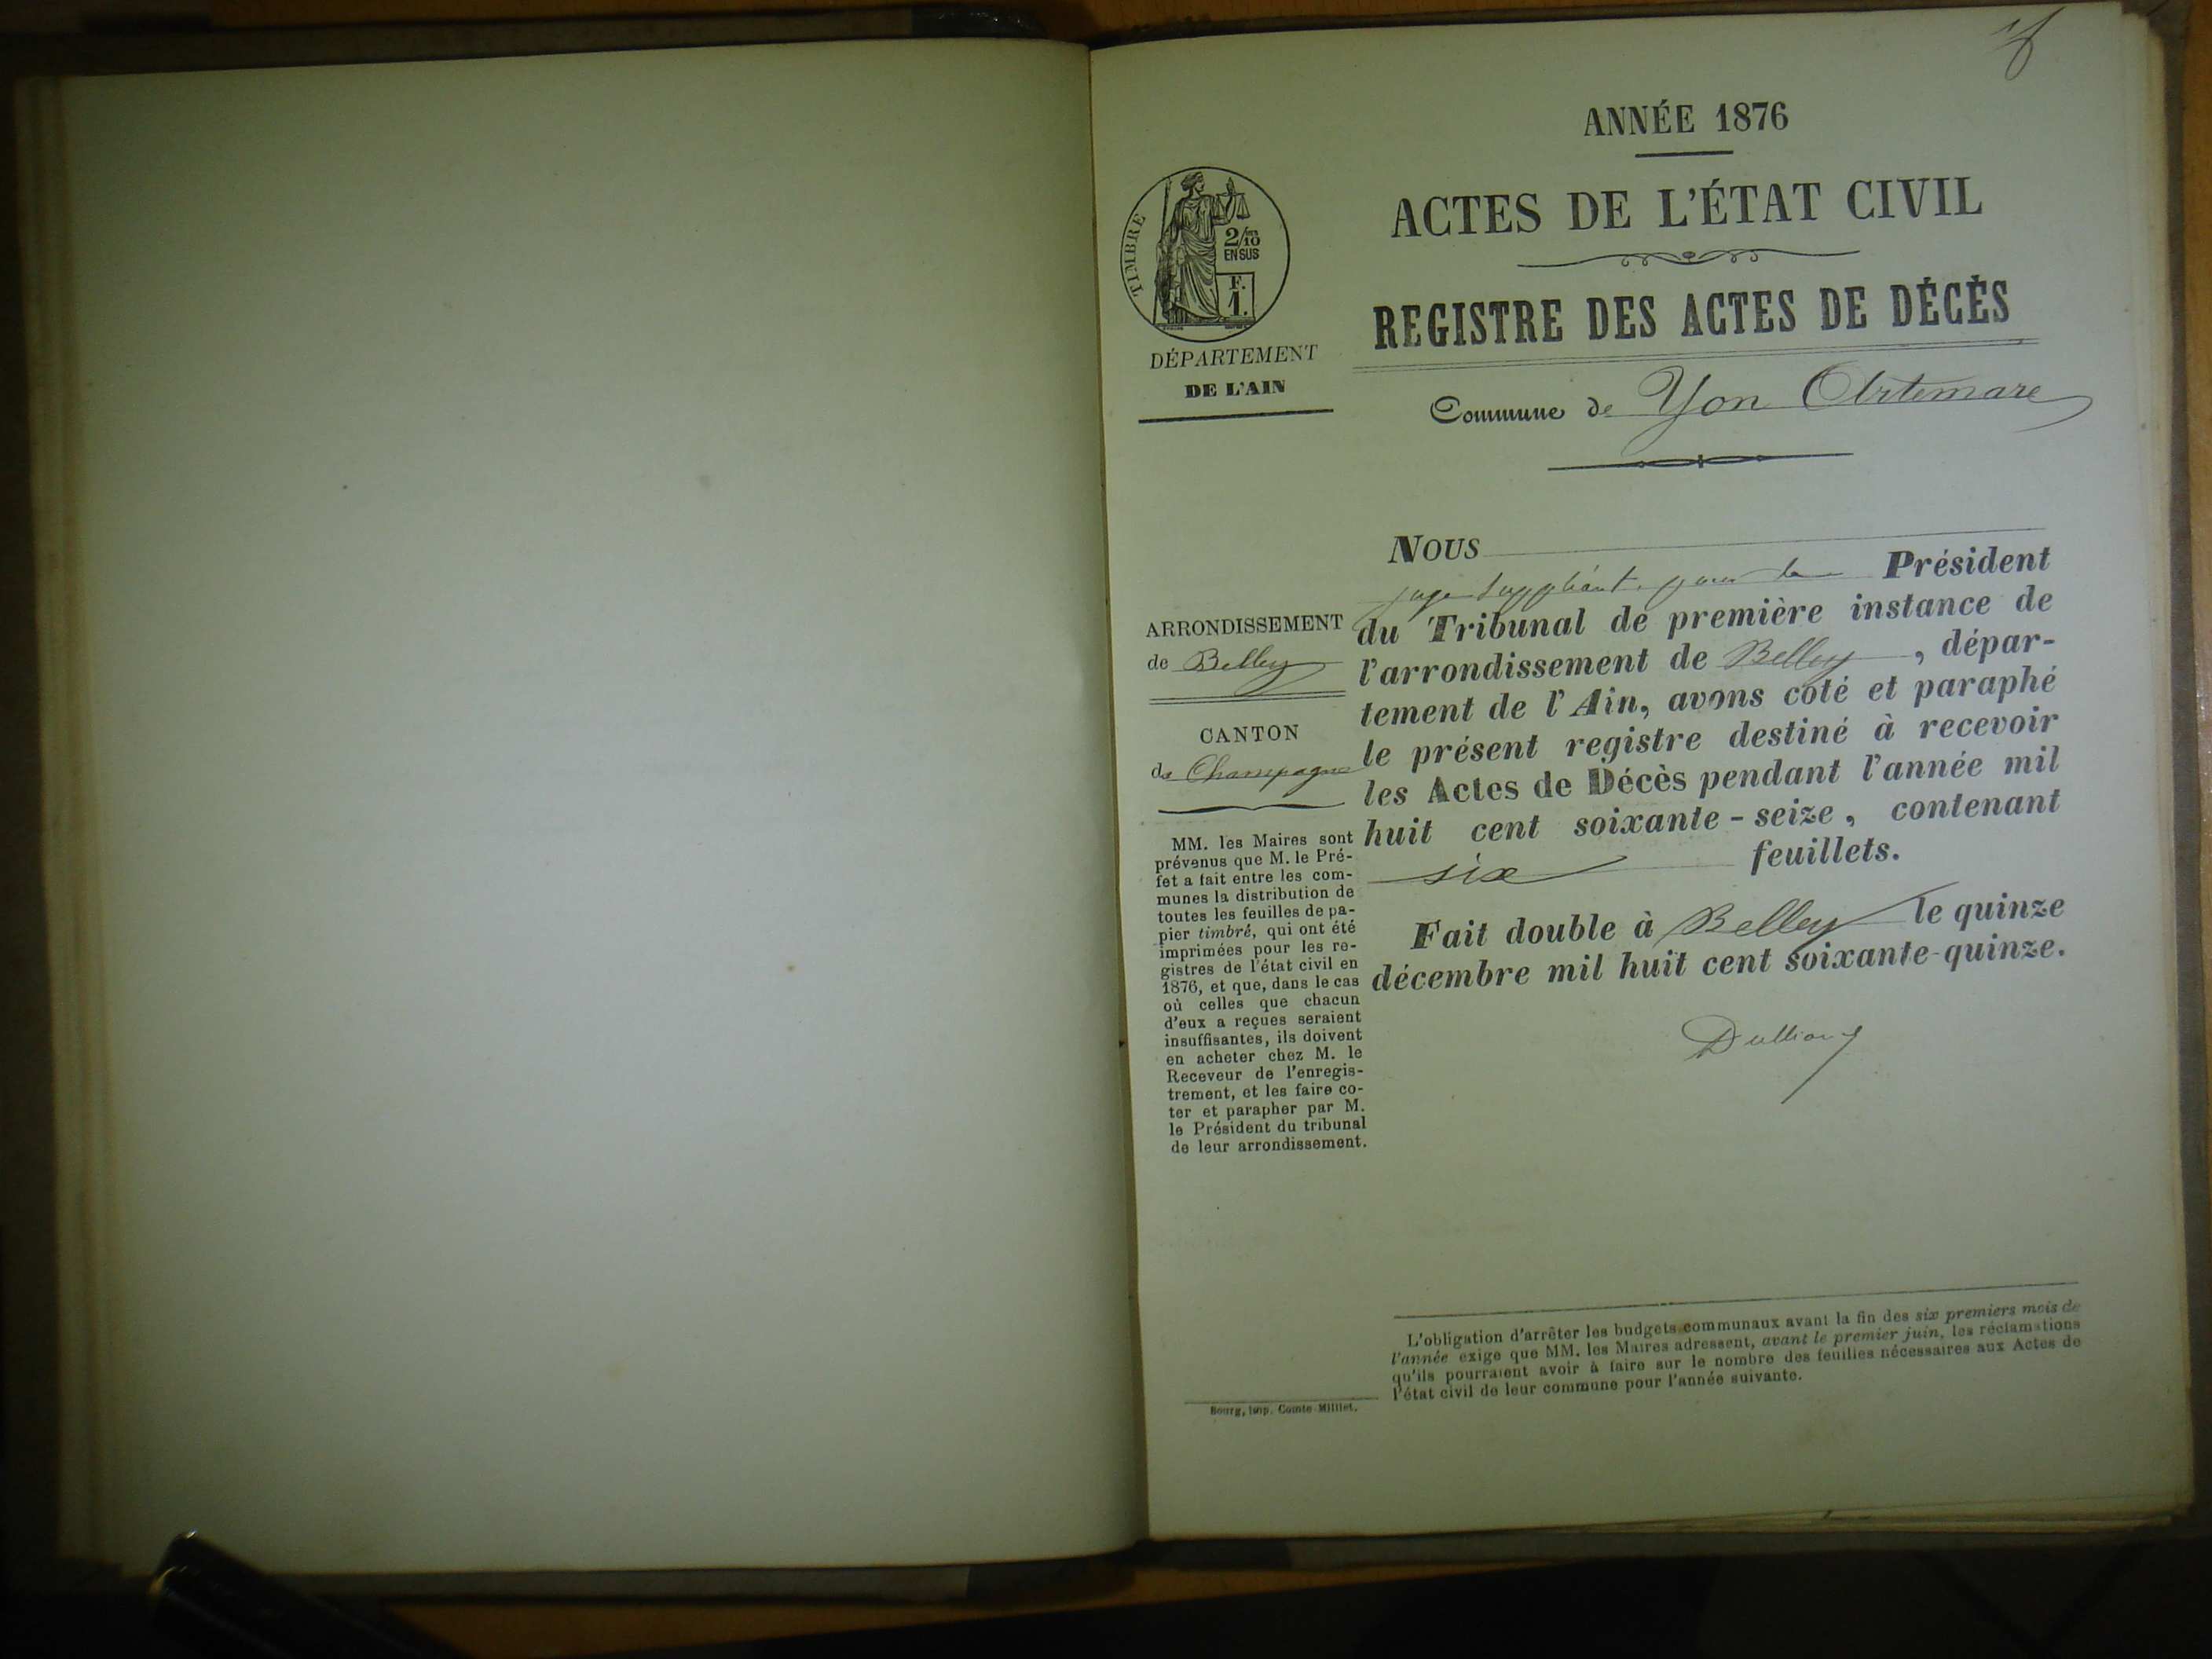 ANNÉE 1876
ACTES DE L'ÉTAT CIVIL
REGISTRE DES ACTES DE DÉCÈS
Commune de Yon Artemare
TIMBRE
2/10
EN SUS
F.
1.
DÉPARTEMENT
DE L'AIN
ARRONDISSEMENT
de Belley
CANTON
de Champagne
MM. les Maires sont
prévenus que M. le Pré-
fet a fait entre les com-
munes la distribution de
toutes les feuilles de pa-
pier timbré, qui ont été
imprimées pour les re-
gistres de l'état civil en
1876, et que, dans le cas
où celles que chacun
d'eux a reçues seraient
insuffisantes, ils doivent
en acheter chez M. le
Receveur de l'enregis-
trement, et les faire co-
ter et parapher par M.
le Président du tribunal
de leur arrondissement.
NOUS
juge suppléant, pour le Président
du Tribunal de première instance de
l'arrondissement de Belley, dépar-
tement de l'Ain, avons coté et paraphé
le présent registre destiné à recevoir
les Actes de Décès pendant l'année mil
huit cent soixante-seize, contenant
six feuillets.
Fait double à Belley le quinze
décembre mil huit cent soixante-quinze.
L'obligation d'arrêter les budgets communaux avant la fin des six premiers mois de
l'année exige que MM. les Maires adressent, avant le premier juin, les réclamations
qu'ils pourraient avoir à faire sur le nombre des feuilles nécessaires aux Actes de
l'état civil de leur commune pour l'année suivante.
Bourg, imp. Comte-Milliet.